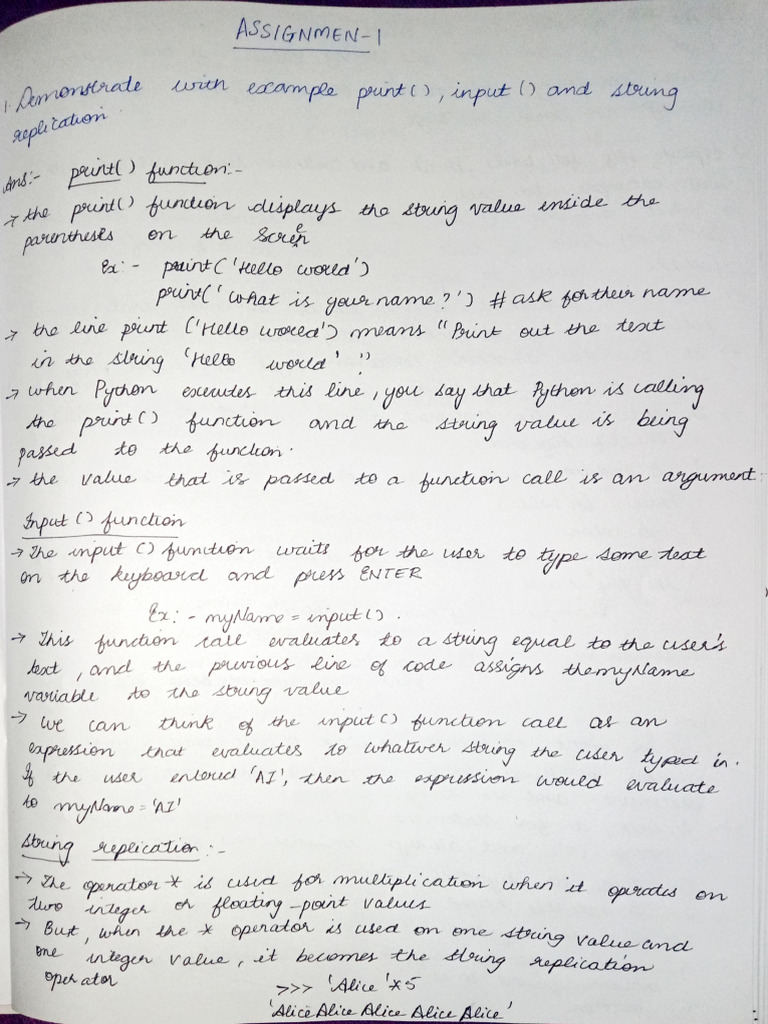 ASSIGNMEN-1
1. Demonstrate with example print(), input() and string
replication.
Ans:- print() function:-
→ the print() function displays the string value inside the
parentheses on the Screen
Ex:- print('Hello world')
print('what is your name?') # ask for their name
→ the line print ('Hello world') means "Print out the text
in the string 'Hello world' "
→ when Python executes this line, you say that Python is calling
the print() function and the string value is being
passed to the function.
→ the value that is passed to a function call is an argument.
Input() function
→ The input () function waits for the user to type some text
on the keyboard and press ENTER
Ex:- myName = input().
→ This function call evaluates to a string equal to the user's
text, and the previous line of code assigns the myName
variable to the string value
→ We can think of the input() function call as an
expression that evaluates to whatever string the user typed in.
If the user entered 'AI', then the expression would evaluate
to myName = 'AI'
String replication:-
→ The operator * is used for multiplication when it operates on
two integer or floating-point values
→ But, when the * operator is used on one string value and
one integer value, it becomes the string replication
operator
>>> 'Alice' * 5
'Alice Alice Alice Alice Alice'